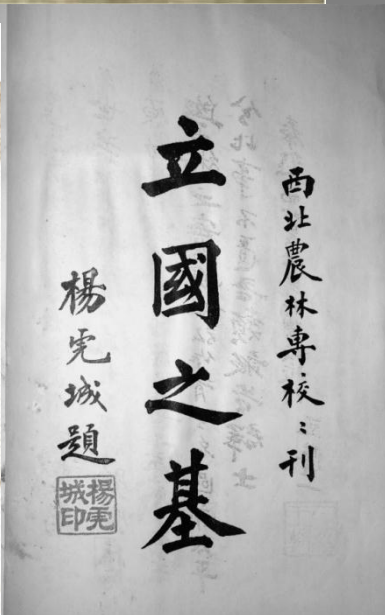 西北農林專校：刊
立國之基
楊虎城題
楊虎城印